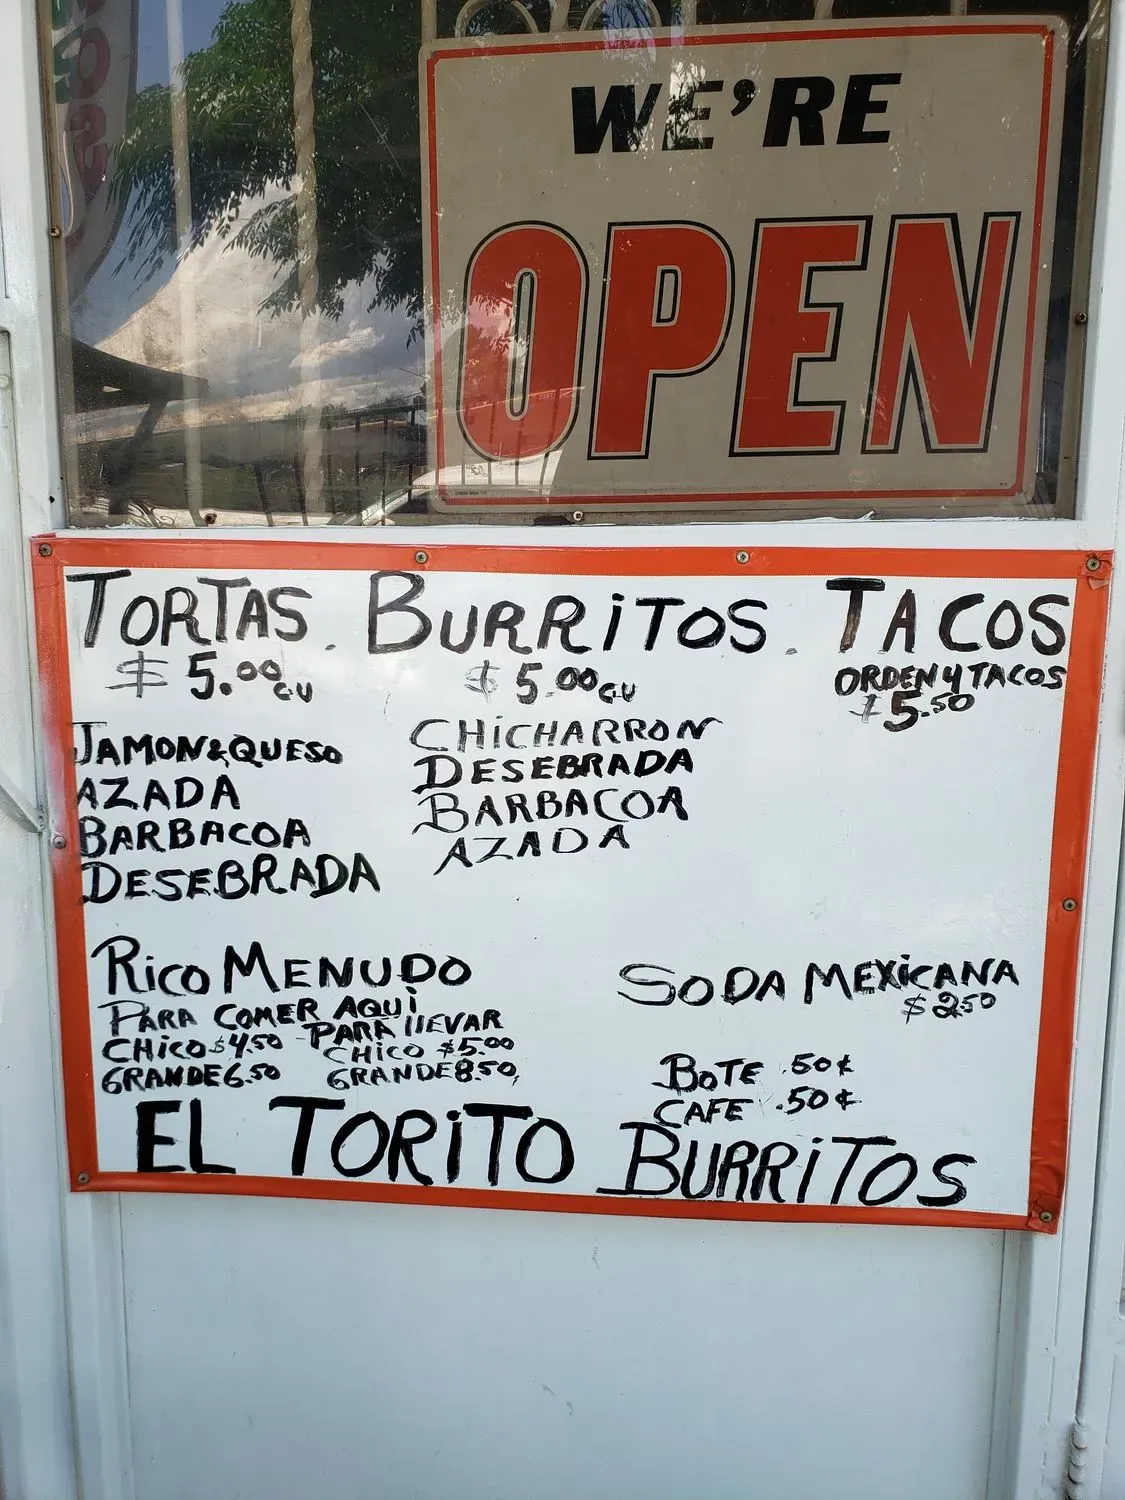 WE'RE
OPEN
TORTAS. BURRiTOS. TACOS
$5.00 CU
$5.00 CU
ORDEN 4 TACOS
$5.50
JAMON&QUESO
AZADA
BARBACOA
DESEBRADA
CHiCHARRON
DESEBRADA
BARBACOA
AZADA
RiCO MENUDO
PARA COMER AQUi
CHiCO $4.50
GRANDE 6.50
- PARA llEVAR
CHiCO $5.00
GRANDE 8.50
SODA MEXiCANA
$2.50
BOTE .50¢
CAFE .50¢
EL TORiTO BURRiTOS